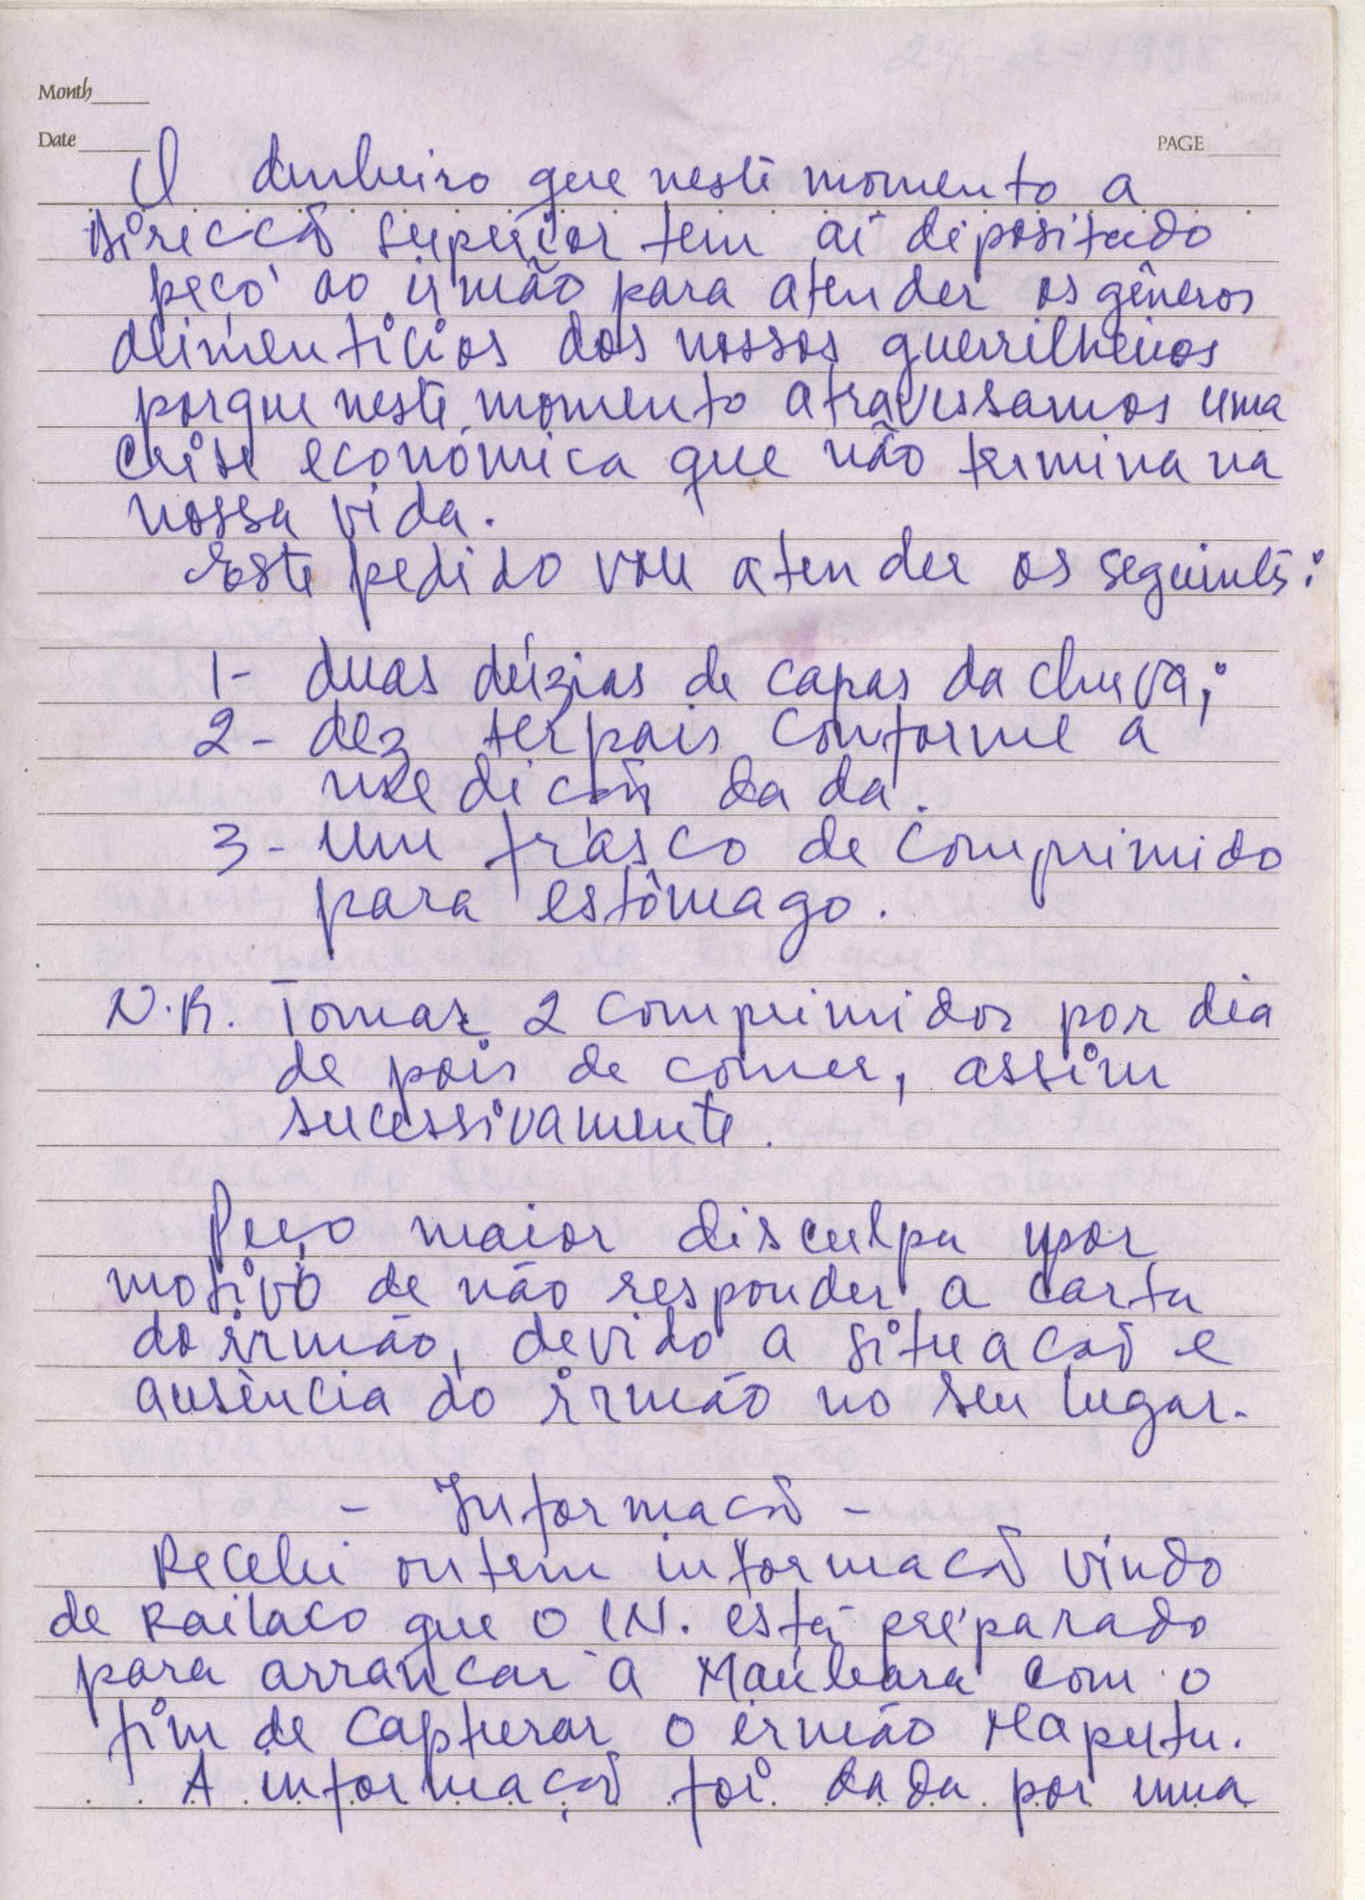 Month
Date
PAGE
O dinheiro que neste momento a
Direccão superior tem aí depositado
peço ao irmão para atender os gêneros
alimentícios dos nossos guerrilheiros
porque neste momento atravessamos uma
crise económica que não termina na
nossa vida.
Este pedido vou atender os seguintes:
1- duas dúzias de capas da chuva;
2- dez terpais conforme a
medicão dada.
3- um frasco de comprimido
para estômago.
N.B. Tomar 2 comprimidos por dia
de pois de comer, assim
sucessivamente.
Peço maior disculpa por
motivo de não responder a carta
do irmão, devido a situacão e
ausência do irmão no seu lugar.
- Informacão -
Recebi ontem informacão vindo
de Railaco que o IN. está preparado
para arrancar a Maubara com o
fim de capturar o irmão Maputu.
A informação foi dada por uma